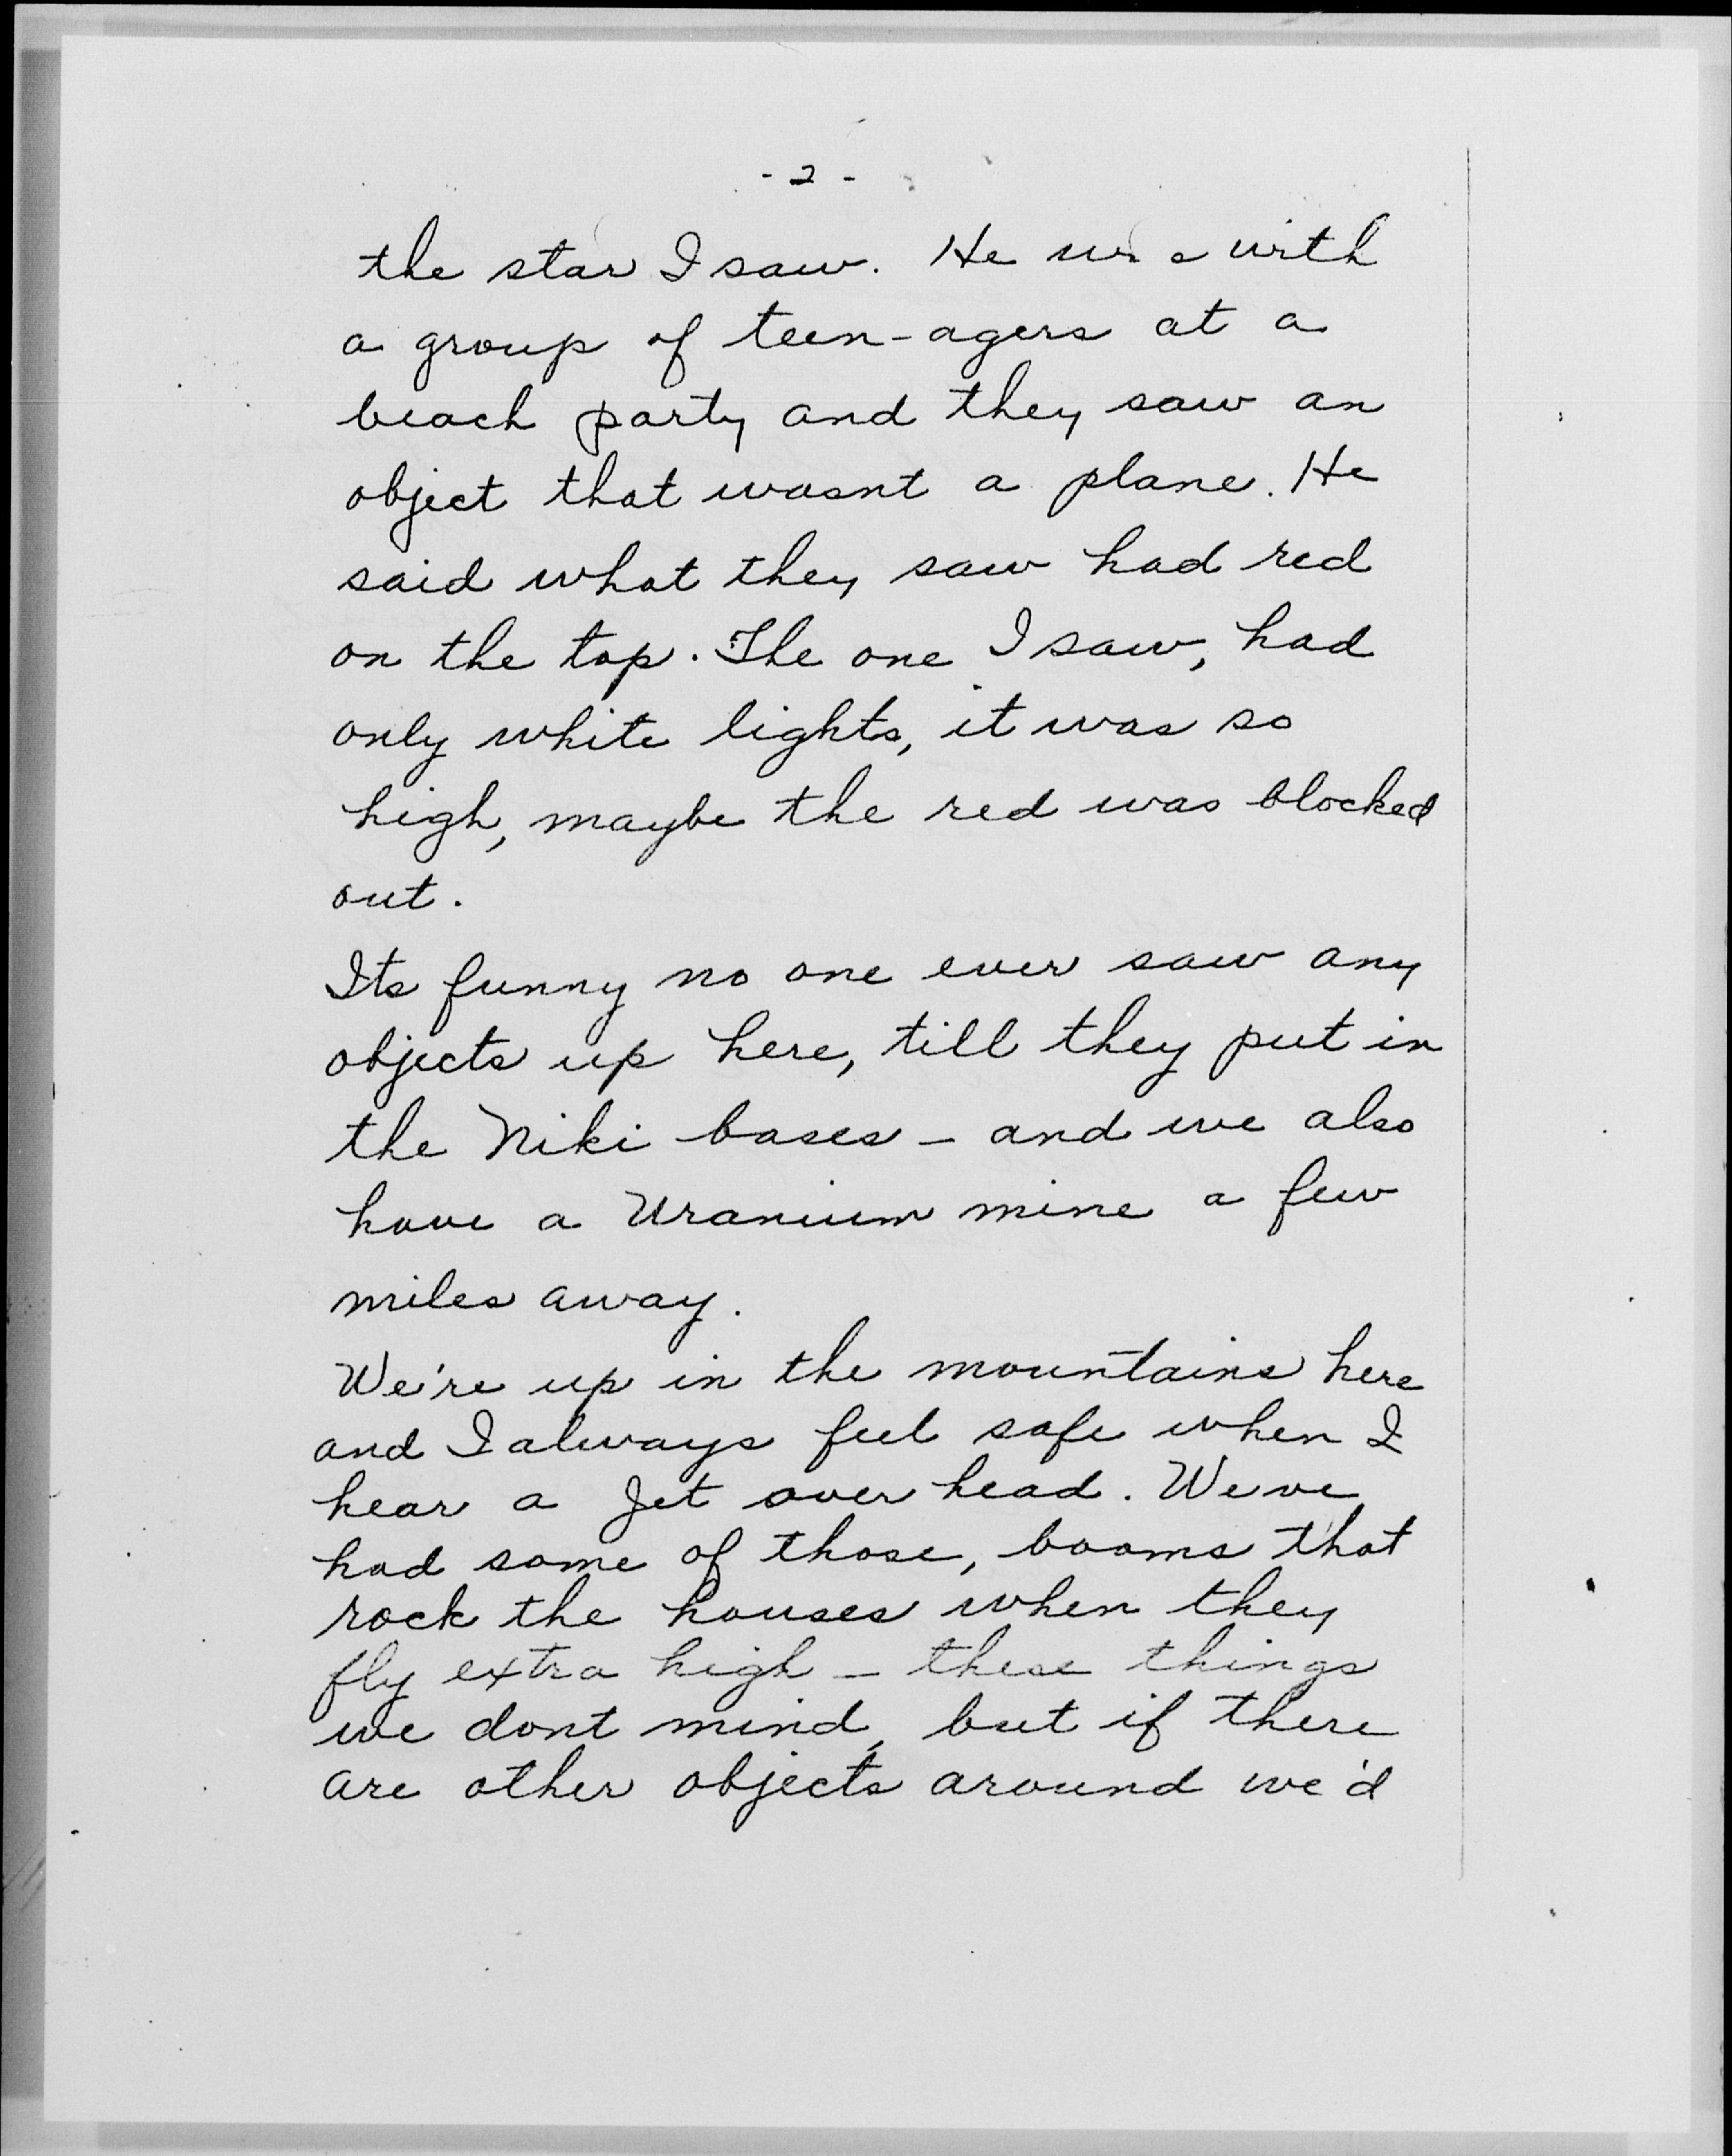 - 2 -
the star I saw. He was with
a group of teen-agers at a
beach party and they saw an
object that wasnt a plane. He
said what they saw had red
on the top. The one I saw, had
only white lights, it was so
high, maybe the red was blocked
out.
Its funny no one ever saw any
objects up here, till they put in
the Niki bases - and we also
have a Uranium mine a few
miles away.
We're up in the mountains here
and I always feel safe when I
hear a Jet over head. We've
had some of those, booms that
rock the houses when they
fly extra high - these things
we dont mind, but if there
are other objects around we'd